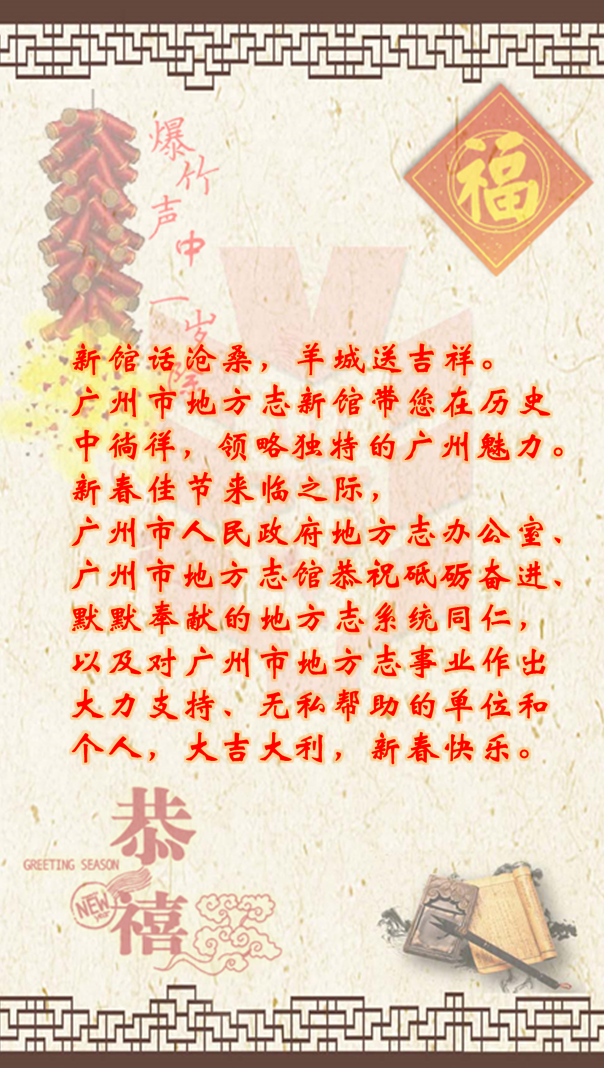 爆竹声中一岁除
福
新馆话沧桑，羊城送吉祥。
广州市地方志新馆带您在历史
中徜徉，领略独特的广州魅力。
新春佳节来临之际，
广州市人民政府地方志办公室、
广州市地方志馆恭祝砥砺奋进、
默默奉献的地方志系统同仁，
以及对广州市地方志事业作出
大力支持、无私帮助的单位和
个人，大吉大利，新春快乐。
恭
GREETING SEASON
NEW
禧